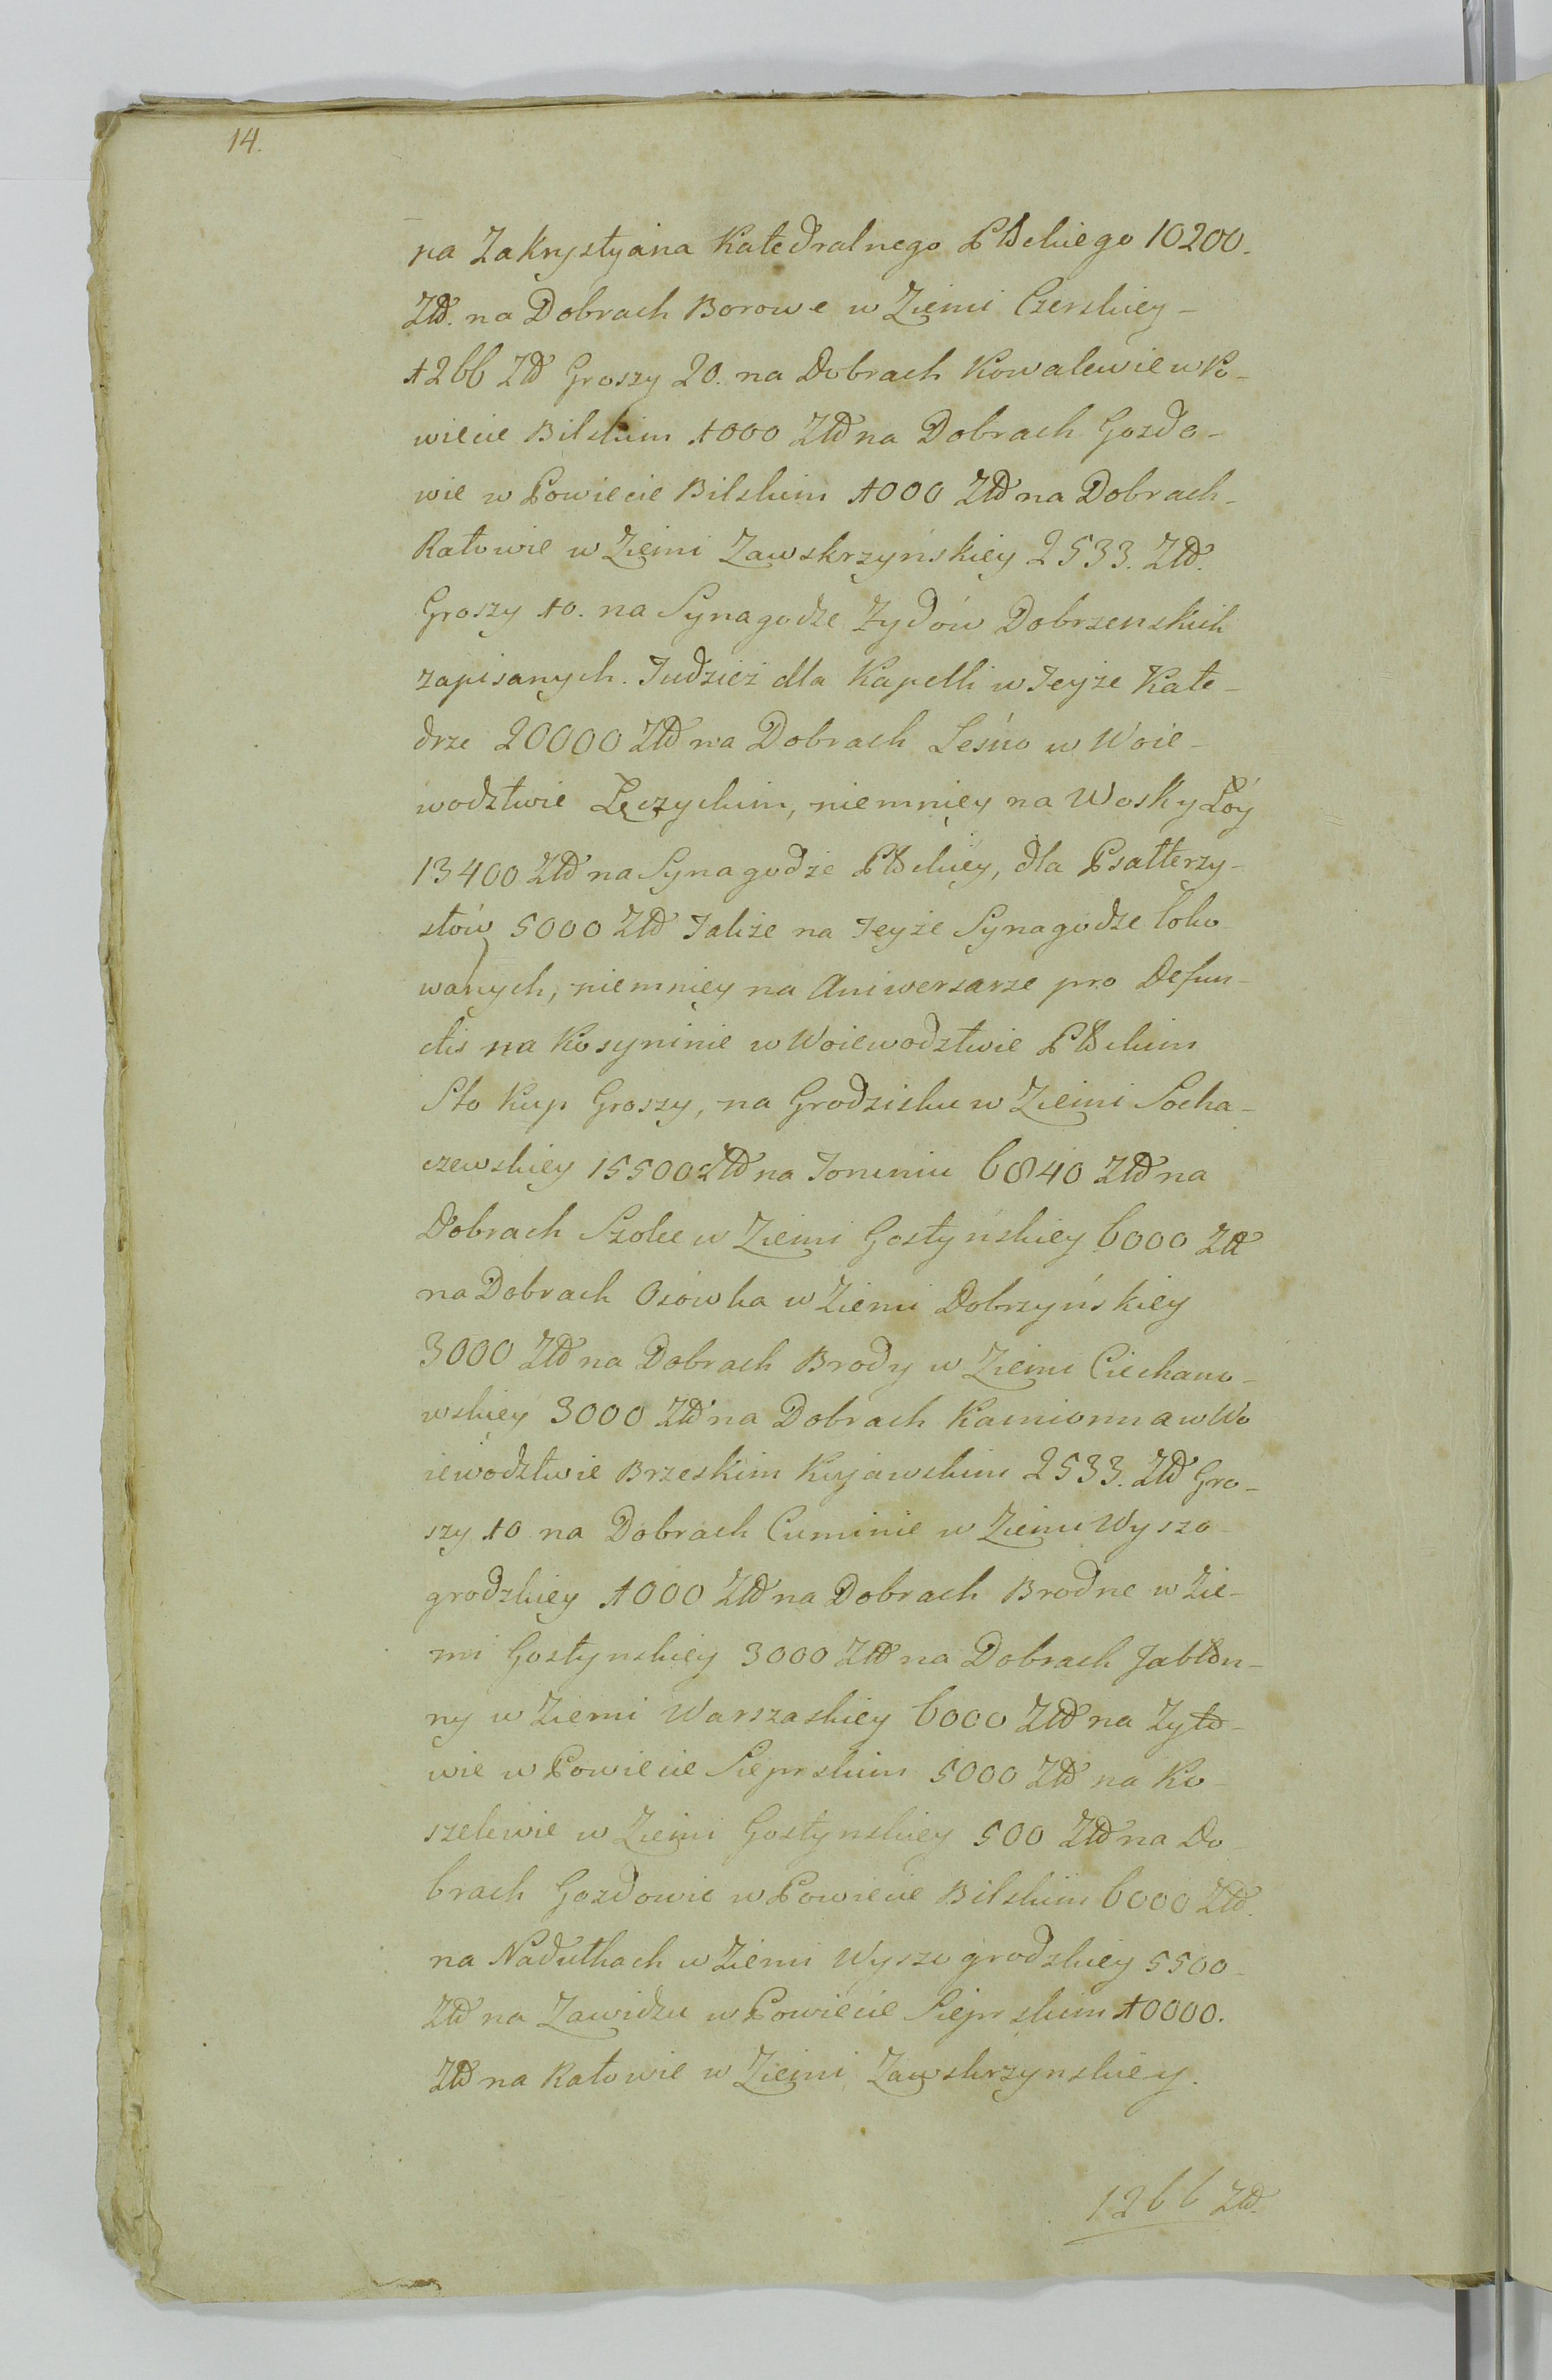 14.
na Zakrystyana Katedralnego Płckiego 10200.
Złł. na Dobrach Borowe w Ziemi Czerskiey -
1266 Złł Groszy 20. na Dobrach Kowalewie w Po-
wiecie Bilskim 1000 Złł na Dobrach Gozdo-
wie w Powiecie Bilskim 1000 Złł na Dobrach -
Ratowie w Ziemi Zawskrzyńskiey 2533. Złł.
Groszy 10. na Synagodze Zydów Dobrzenskich
zapisanych. Tudzież dla Kapelli w Teyże Kate-
drze 20000 Złł na Dobrach Leśno w Woie-
wodztwie Łęczyckim, niemniey na Wosk y Łóy
13400 Złł na Synagodze Płckiey, dla Psałterzy-
stów 5000 Złł Także na Teyże Synagodze loko
wanych, niemniey na Aniwersarze pro Defun-
ctis na Kosyninie w Woiewodztwie Płckim
Sto Kup Groszy, na Grodzisku w Ziemi Socha-
czewskiey 15500 Złł na Toruniu 6840 Złł na
Dobrach Szolce w Ziemi Gostyńskiey 6000 Złł
na Dobrach Osówka w Ziemi Dobrzyńskiey
3000 Złł na Dobrach Brody w Ziemi Ciechano-
wskiey 3000 Złł na Dobrach Kamionna w Wo
iewodztwie Brzeskim Kujawskim 2533. Złł Gro-
szy 10 na Dobrach Cuminie w Ziemi Wyszo-
grodzkiey 1000 Złł na Dobrach Brodne w Zie-
mi Gostynskiey 3000 Złł na Dobrach Jabłon-
ny w Ziemi Warszaskiey 6000 Złł na Zyto-
wie w Powiecie Sieprskim 5000 Złł na Ko-
szelewie w Ziemi Gostynskiey 500 Złł na Do-
brach Gozdowie w Powiecie Bilskim 6000 Złł.
na Nadułkach w Ziemi Wyszogrodzkiey 5500 -
Złł na Zawidzu w Powiecie Sieprskim 10000.
Złł na Ratowie w Ziemi Zawskrzynskiey.
1266 Złł.